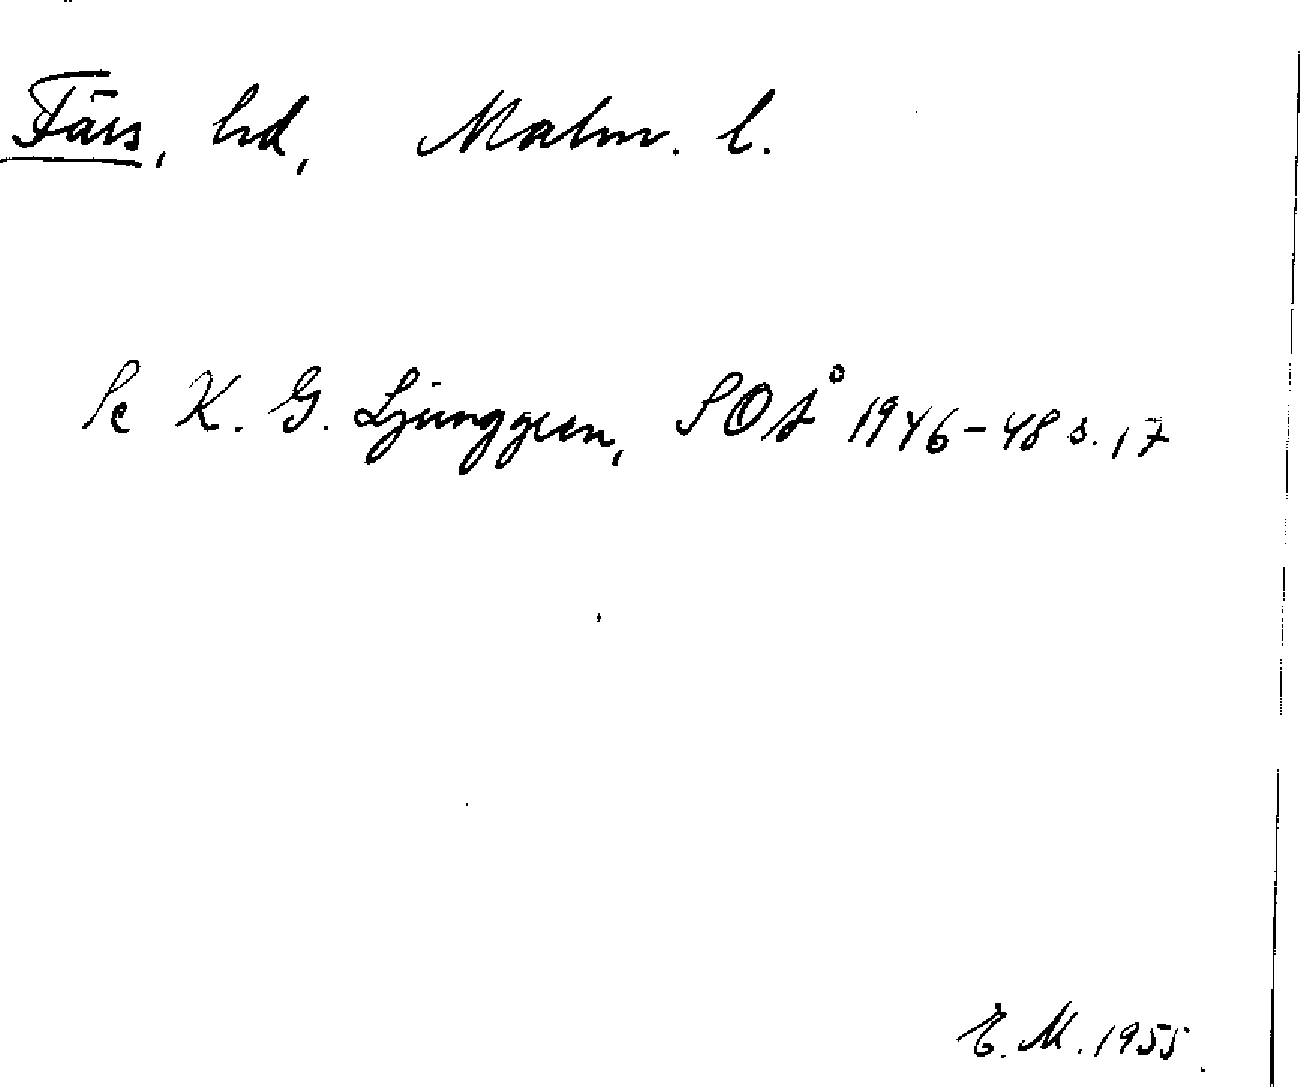 Färs, hd, Malm. l.
Se K. G. Ljunggren, SOÅ 1946-48 s. 17
E. M. 1955.